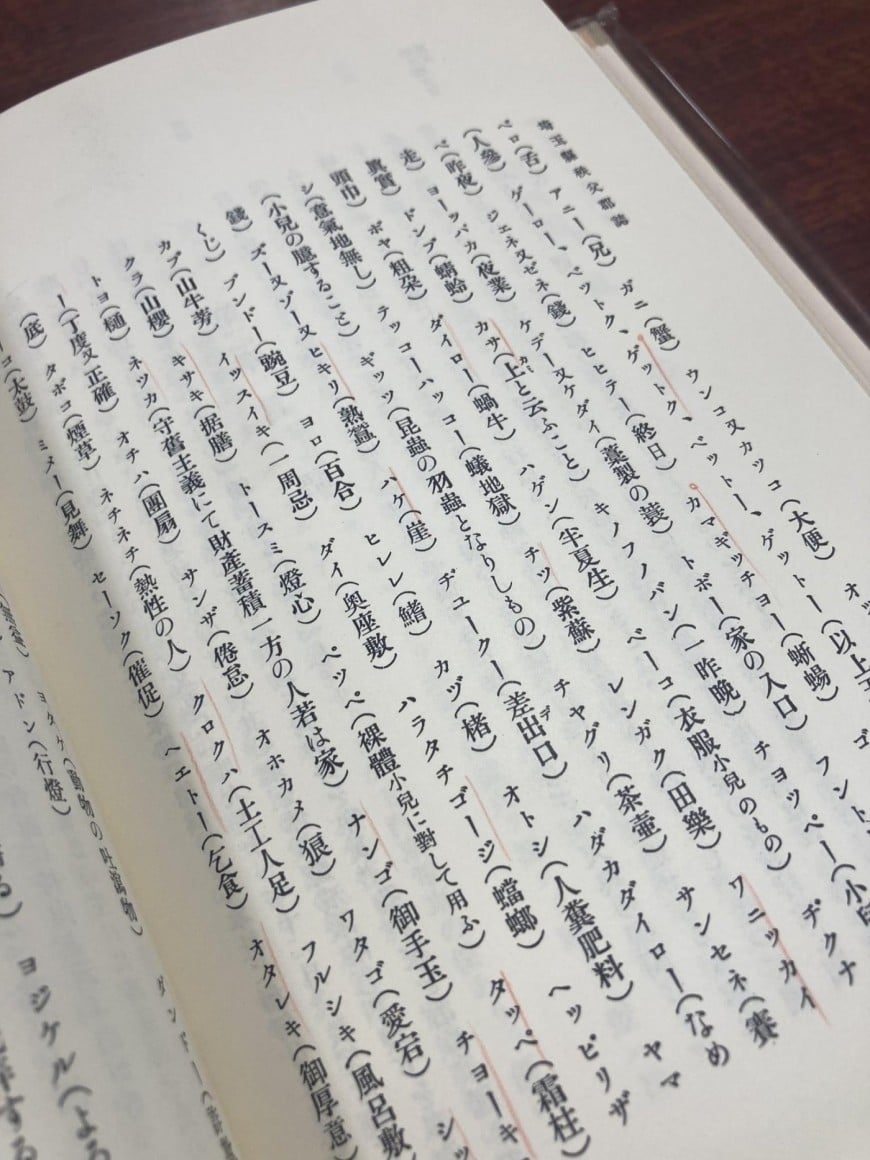 埼玉縣秩父郡誌
ベロ(舌) アニー(兄) ガニ(蟹) ウンコ又カツコ(大便) オッ
(人參) ゲーロー、ベットク、ゲットク、ベットー、ゲットー(以上
ベ(昨夜) ジェネ又ゼネ(錢) ヒヒテー(終日) カマギッチョー(蜥蜴) フント
走) ヨーッパカ(夜業) ケデー又ケダイ(藁製の蓑) トボー(家の入口) チヨッペー(小兒
眞實) ドンブ(蜻蛉) カサ(上と云ふこと) キノフノバン(一昨晩) ヂクナ
頭巾) ボヤ(粗朶) ダイロー(蝸牛) ハゲン(半夏生) ベーコ(衣服小兒のもの) ワニッカイ
シ(意氣地無し) テッコーハッコー(蟻地獄) チソ(紫蘇) レンガク(田樂) サンセネ(賽
(小兒の臆すること) ギッツ(昆蟲の羽蟲となりしもの) チヤグリ(茶壺) ハダカダイロー(なめ
錢) ズー又ゾー又ヒキリ(熟蠶) バケ(崖) ヂュークー(差出口) オトシ(人糞肥料) ヤマ
くじ) ブンドー(豌豆) ヨロ(百合) ヒレレ(鰭) カヅ(楮) ハラタチゴージ(蟷螂) ヘッピリザ
カブ(山牛蒡) イッスイキ(一周忌) ダイ(奧座敷) ペッペ(裸體小兒に對して用ふ) タッペ(霜柱)
クラ(山櫻) キサキ(据膳) トースミ(燈心) ナンゴ(御手玉) チョーキ
トヨ(樋) ネツカ(守舊主義にて財產蓄積一方の人若は家) ワタゴ(愛宕) シッ
ー(丁度又正確) オチハ(團扇) サンザ(倦忌) オホカメ(狼) フルシキ(風呂敷)
(底) タボコ(煙草) ネチネチ(熱性の人) クロクハ(土工人足) オタレキ(御厚意)
コ(太鼓) ミメー(見舞) セーソク(催促) ヘエトー(乞食)
アドン(行燈)
ヨジケル(よろ